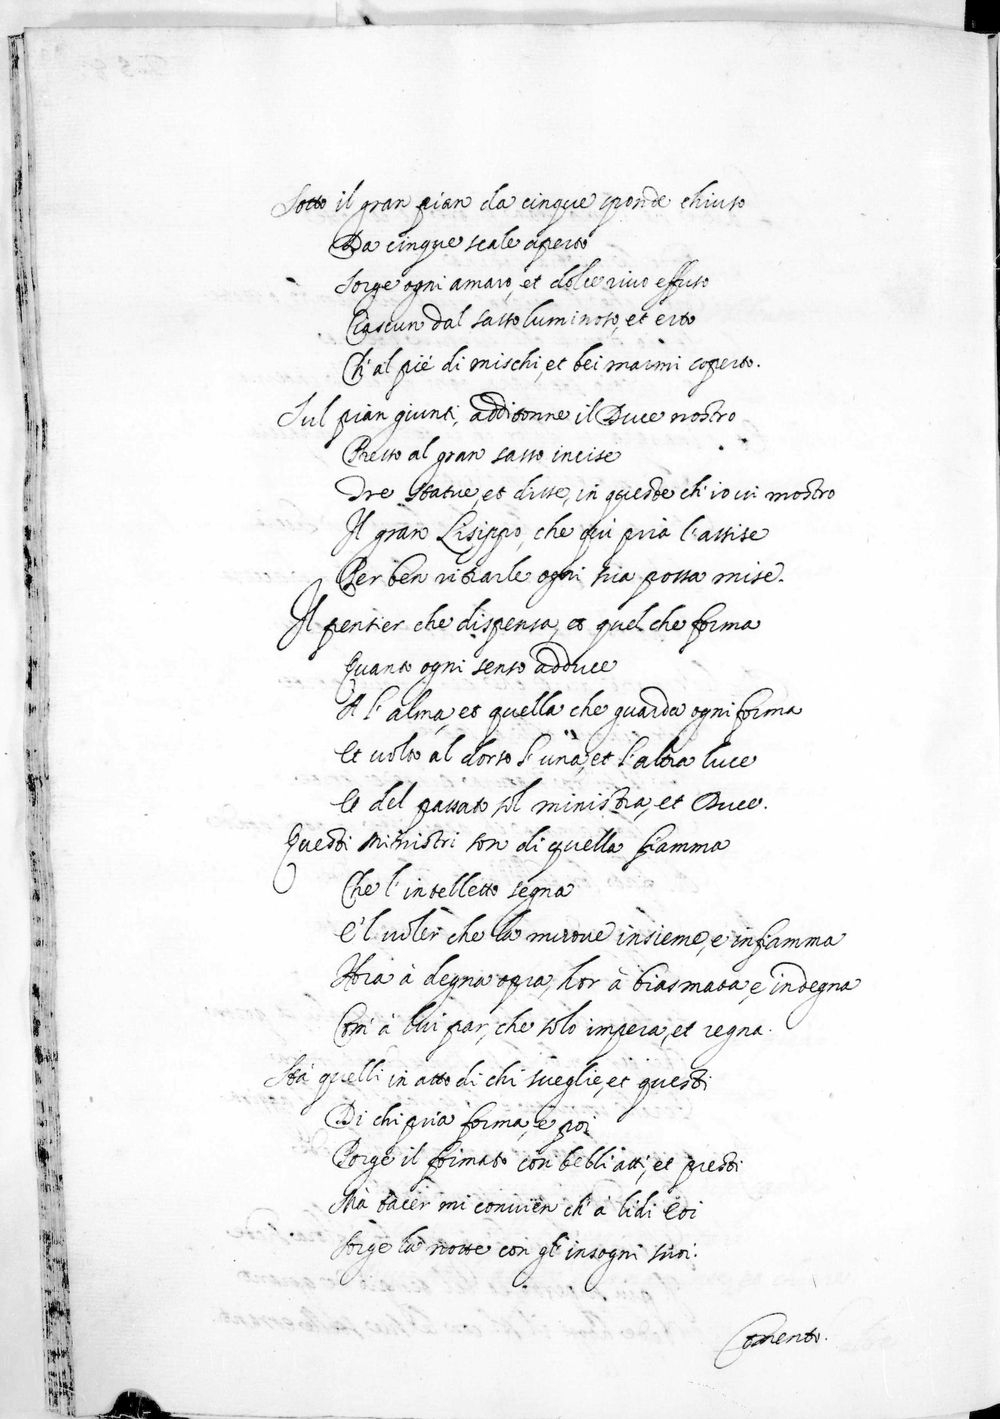 Sotto il gran pian da cinque sponde chiuso
Da cinque scale aperto
Sorge ogni amaro, et dolce rivo effuso
Ciascun dal sasso luminoso, et erto
Ch'al piè di mischi, et bei marmi coperto.
Sul pian giunti, additonne il Duce nostro
Presso al gran sasso incise
Tre statue, et disse, in queste ch'io vi mostro
Il gran Lisippo, che qui pria l'assise
Per ben ritrarle ogni sua possa mise.
Il pensier che dispensa, et quel che forma
Quanto ogni senso adduce
A l'alma, et quella che guarda ogni forma
Et volto al dorso l'una, et l'altra luce
E del passato sol ministra, et Duce.
Questi Ministri son di quella fiamma
Che l'intelletto segna
E'l voler che la muove insieme, e infiamma
Hora à degna opra, hor à biasmata, e indegna
Com' à lui par, che solo impera, et regna.
Stà quelli in atto di chi sveglie, et questi
Di chi pria forma, e poi
Porge il formato con belli atti, et presti
Mà tacer mi convien ch' à lidi Eoi
Sorge la notte con gl'insogni suoi.
Comento.